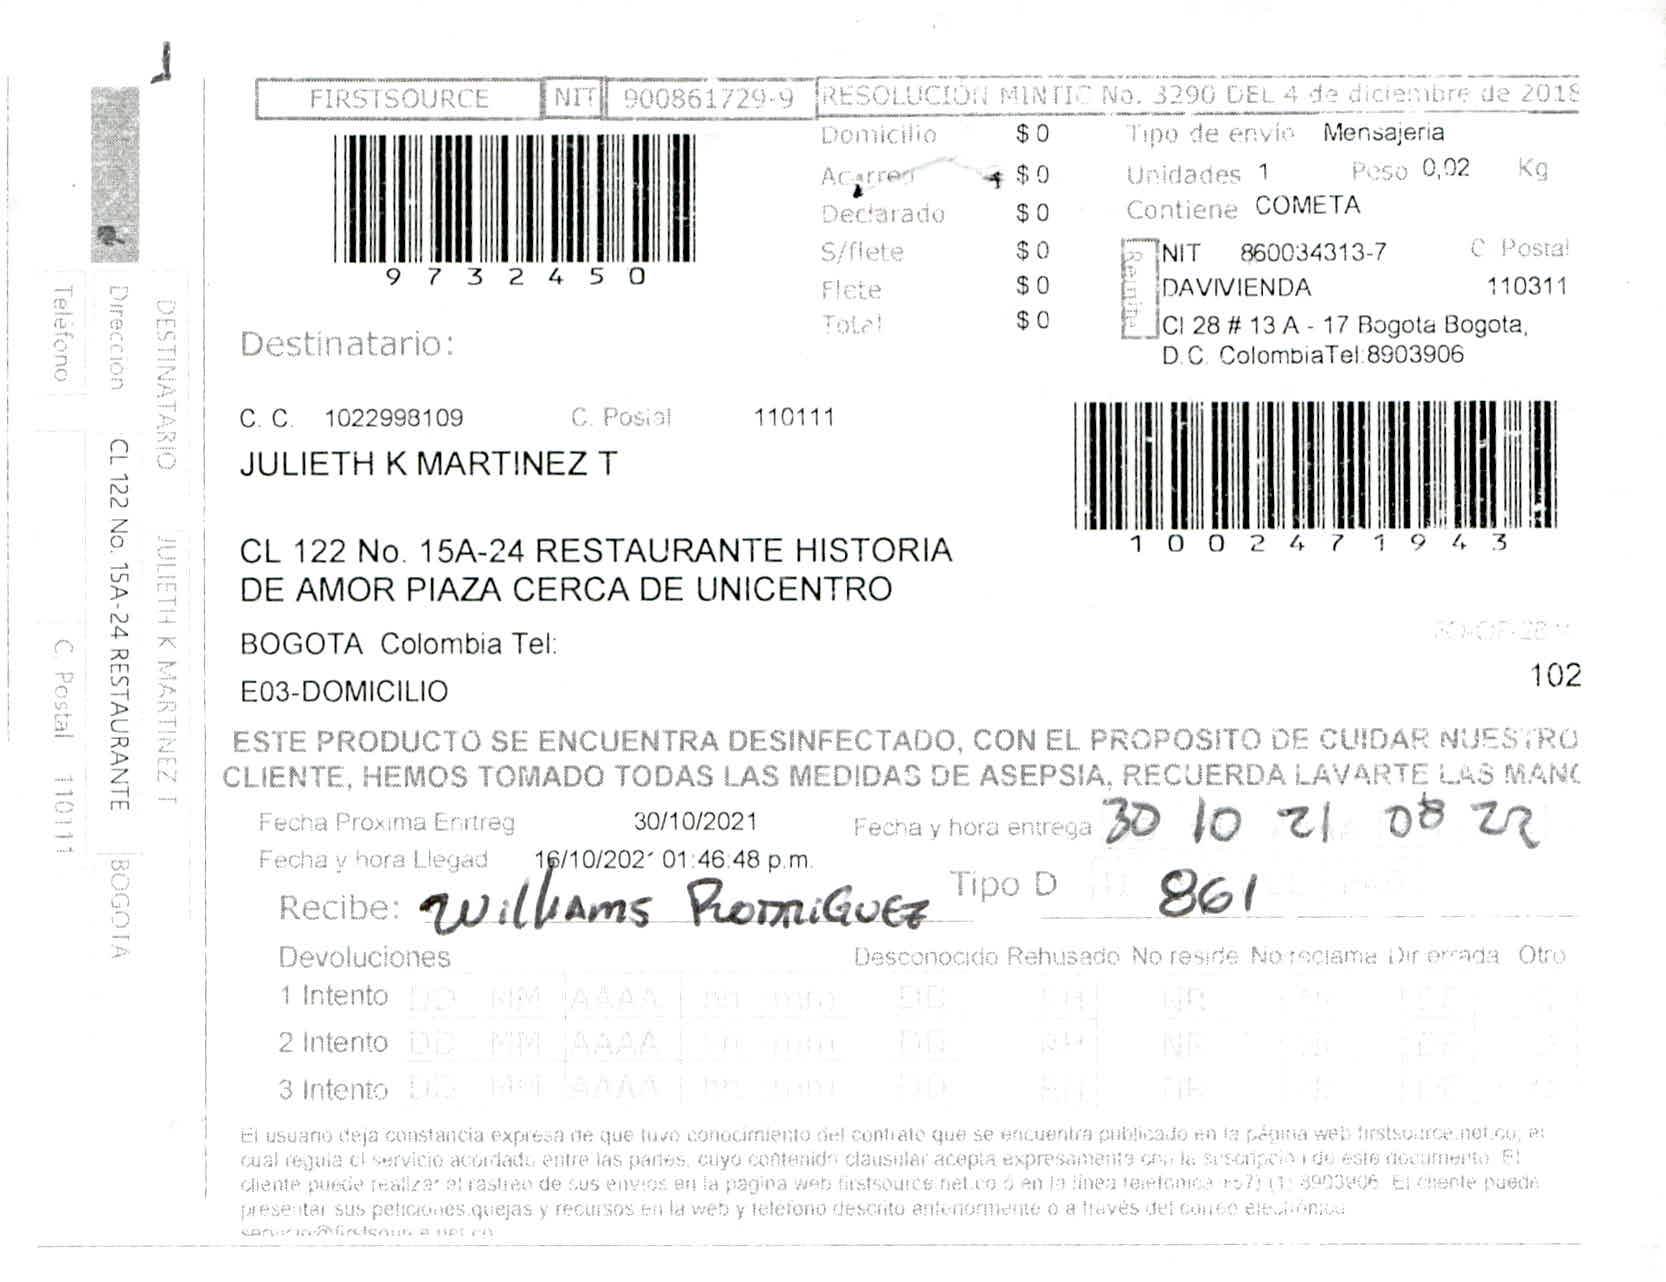 FIRSTSOURCE NIT 900861729-9 RESOLUCIÓN MINTIC No. 3290 DEL 4 de diciembre de 2018
Domicilio $ 0
Acarreo $ 0
Declarado $ 0
S/flete $ 0
Flete $ 0
Total $ 0
Tipo de envío Mensajeria
Unidades 1 Peso 0,02 Kg
Contiene COMETA
Remite
NIT 860034313-7 C Postal
DAVIVIENDA 110311
Cl 28 # 13 A - 17 Bogota Bogota,
D.C. ColombiaTel:8903906
9732450
Destinatario:
C. C. 1022998109 C. Postal 110111
JULIETH K MARTINEZ T
1002471943
CL 122 No. 15A-24 RESTAURANTE HISTORIA
DE AMOR PIAZA CERCA DE UNICENTRO
BOGOTA Colombia Tel:
102
E03-DOMICILIO
ESTE PRODUCTO SE ENCUENTRA DESINFECTADO, CON EL PROPOSITO DE CUIDAR NUESTRO
CLIENTE, HEMOS TOMADO TODAS LAS MEDIDAS DE ASEPSIA, RECUERDA LAVARTE LAS MANO
Fecha Proxima Enrtreg 30/10/2021 Fecha y hora entrega 30 10 21 08 22
Fecha y hora Llegad 16/10/2021 01:46:48 p.m.
Recibe: Williams Rodriguez Tipo D 861
Devoluciones Desconocido Rehusado No reside No reclama Dir errada Otro
1 Intento DD MM AAAA hh mm DD RH NR
2 Intento DD MM AAAA hh mm DD RH NR
3 Intento DD MM AAAA hh mm DD RH NR
El usuario deja constancia expresa de que tuvo conocimiento del contrato que se encuentra publicado en la página web firstsource.net.co, el
cual regula el servicio acordado entre las partes, cuyo contenido clausular acepta expresamente con la suscripción de este documento. El
cliente puede realizar el rastreo de sus envios en la pagina web firstsource.net.co ó en la línea telefónica (+57) (1) 8903906. El cliente puede
presentar sus peticiones,quejas y recursos en la web y telefono descrito anteriormente o a través del correo electrónico
servicio@firstsource.net.co
DESTINATARIO JULIETH K MARTINEZ T
Direccion CL 122 No. 15A-24 RESTAURANTE BOGOTA
Teléfono C. Postal 110111